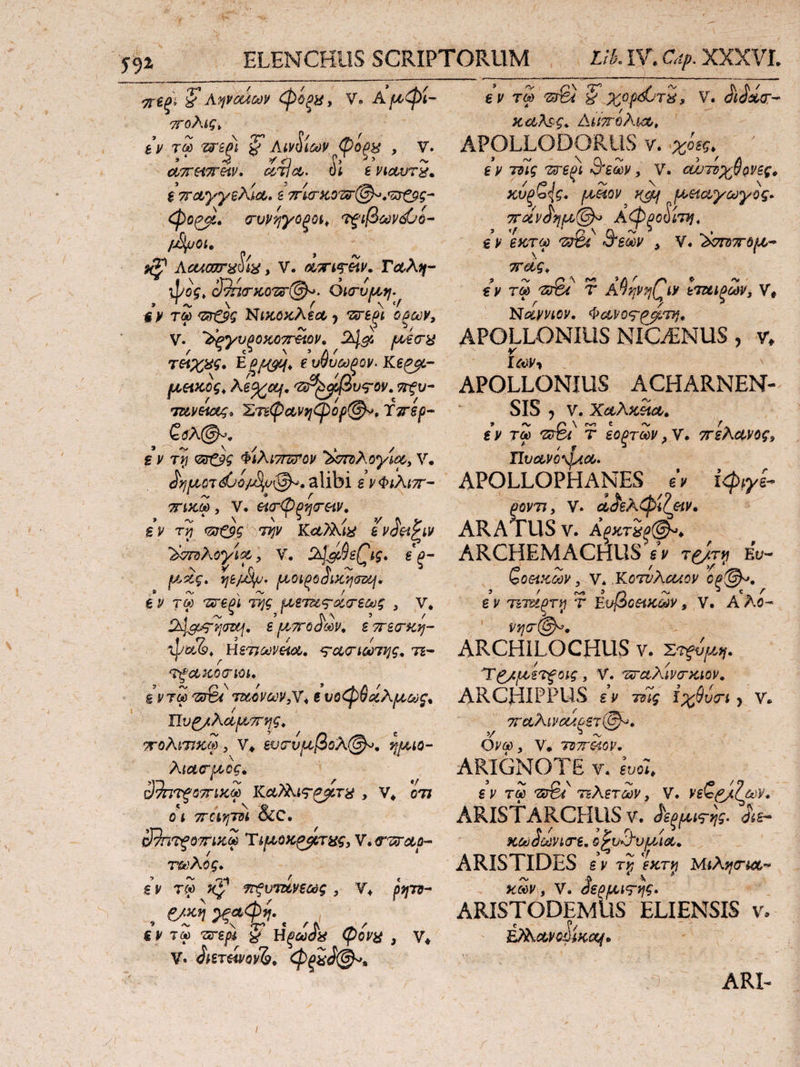 592 ELENCHUS SCRIPTORUM Lib. IV. Cap. XXXVI.
περὶ τ̃ Ληναίων φόρȣ, V. Ἀμφί-
πολις,
ἐν τῷ περὶ τ̃ Λινδίων φόρȣ , V.
ἀπειπεῖν. ἄτ]α. δὶ ἐνιαυτȣ̃.
ἐπαγγελία. ἐπίσκοπ@.προς-
φορᾷ. συνήγοροι, τριβωνδυό-
μϟοι.
κτ̃ Λαιασποδίȣ, V. ἀπιςεῖν. Γαλη-
ψός, ἐπίσκοπ@. Οἰσύμη.
ἐν τῷ πρὸς Νικοκλέα, περὶ ὅρων,
V. ἀργυροκοπεῖον. Διὰ μέσȣ
τείχȣς. Ἑρμαῖ, ἐυθύωρον. Κερα-
μεικός, λεχαι. παράβυςον. πρυ-
τανείας, Στεφανηφόρ@. Ὑπέρ-
ϐολ@.
ἐν τῇ πρὸς Φίλιππον ἀπολογία, V.
δημοτδυόμϟ@. alibi ἐν Φιλιπ-
πικῷ , V. εἰσφρήσειν.
ἐν τῇ πρὸς τὴν Καλλίȣ ἔνδειξιν
ἀπολογία, V. Διάθεσις. ἐρ-
μᾶς. ἡεμϟ. μοιροδικῆσαι.
ἐν τῷ περὶ τῆς μεταςάσεως , V.
Διαςῆσαι. ἐμποδών. ἐπεσκή-
ψατο. Ηετιωνεία. ςασιώτης. τε-
τρακόσιοι.
ἐν τῷ περὶ ταόνων,V. ἐυοφθάλμως,
Πυριλάμπης.
πολιτικῷ , V. ἐυσύμβολ@. ἡμιο-
λιασμός.
ἐπιτροπικῷ Καλλιςράτȣ , V. ὅτι
οἱ ποιητοὶ &c.
ἐπιτροπικῷ Τιμοκράτȣς, V. σπαρ-
τωλός.
ἐν τῷ κτ̃ πρυτάνεως , V. ῥητο-
ρικὴ γραφή.
ἐν τῷ περὶ τ̃ Ἡρώδȣ φόνȣ , V.
V. διετείνοντο. φρȣδ@.
ἐν τῷ περὶ τ̃ χορδυτȣ̃, V. διδάσ-
καλος. Διιπόλια,
APOLLODORUS v. χόες,
ἐν τοῖς περὶ θεῶν , V. αὐτόχθονες,
κύρϐεις. μεῖον καὶ μειαγωγός.
πάνδημ@ Ἀφροδίτη.
ἐν ἕκτῳ περὶ θεῶν , V. ἀποπομ-
πάς,
ἐν τῷ περὶ τ̃ Ἀθήνησιν ἑταιρῶν, V,
Νάννιον. Φανοςράτη.
APOLLONIUS NICÆNUS , v.
Ἴων,
APOLLONIUS ACHARNEN-
SIS , v. Χαλκεῖα.
ἐν τῷ περὶ τ̃ ἑορτῶν , V. πέλανος,
Πυανόψια.
APOLLOPHANES ἐν ἰφιγέ-
ροντι, V. ἀδελφίζειν.
ARATUS v. Ἀρκτȣ̃ρ@.
ARCHEMACHUS ἐν τρίτῃ Ευ-
ϐοεικῶν , V. Κοτύλαιον ὄρ@.
ἐν τετάρτῃ τ̃ Ευβοεικῶν , V. Ἀλό-
νησ@.
ARCHILOCHUS v. Στρύμη.
Τριμέτροις , V. παλίνσκιον.
ARCHIPPUS ἐν τοῖς ἰχθύσι , V.
παλιναίρετ@.
Ὄνῳ , V. τόπεῖον.
ARIGNOTE v. ἐυοῖ,
ἐν τῷ περὶ τελετῶν , V. νεϐρίζων.
ARISTARCHUS v. δερμιςής. διε-
κωδώνισε. ὀξυθυμία.
ARISTIDES ἐν τῇ ἕκτῃ Μιλησια-
κῶν , V. δερμιςής.
ARISTODEMUS ELIENSIS v.
Ἑλλανοδίκαι.
ARI-